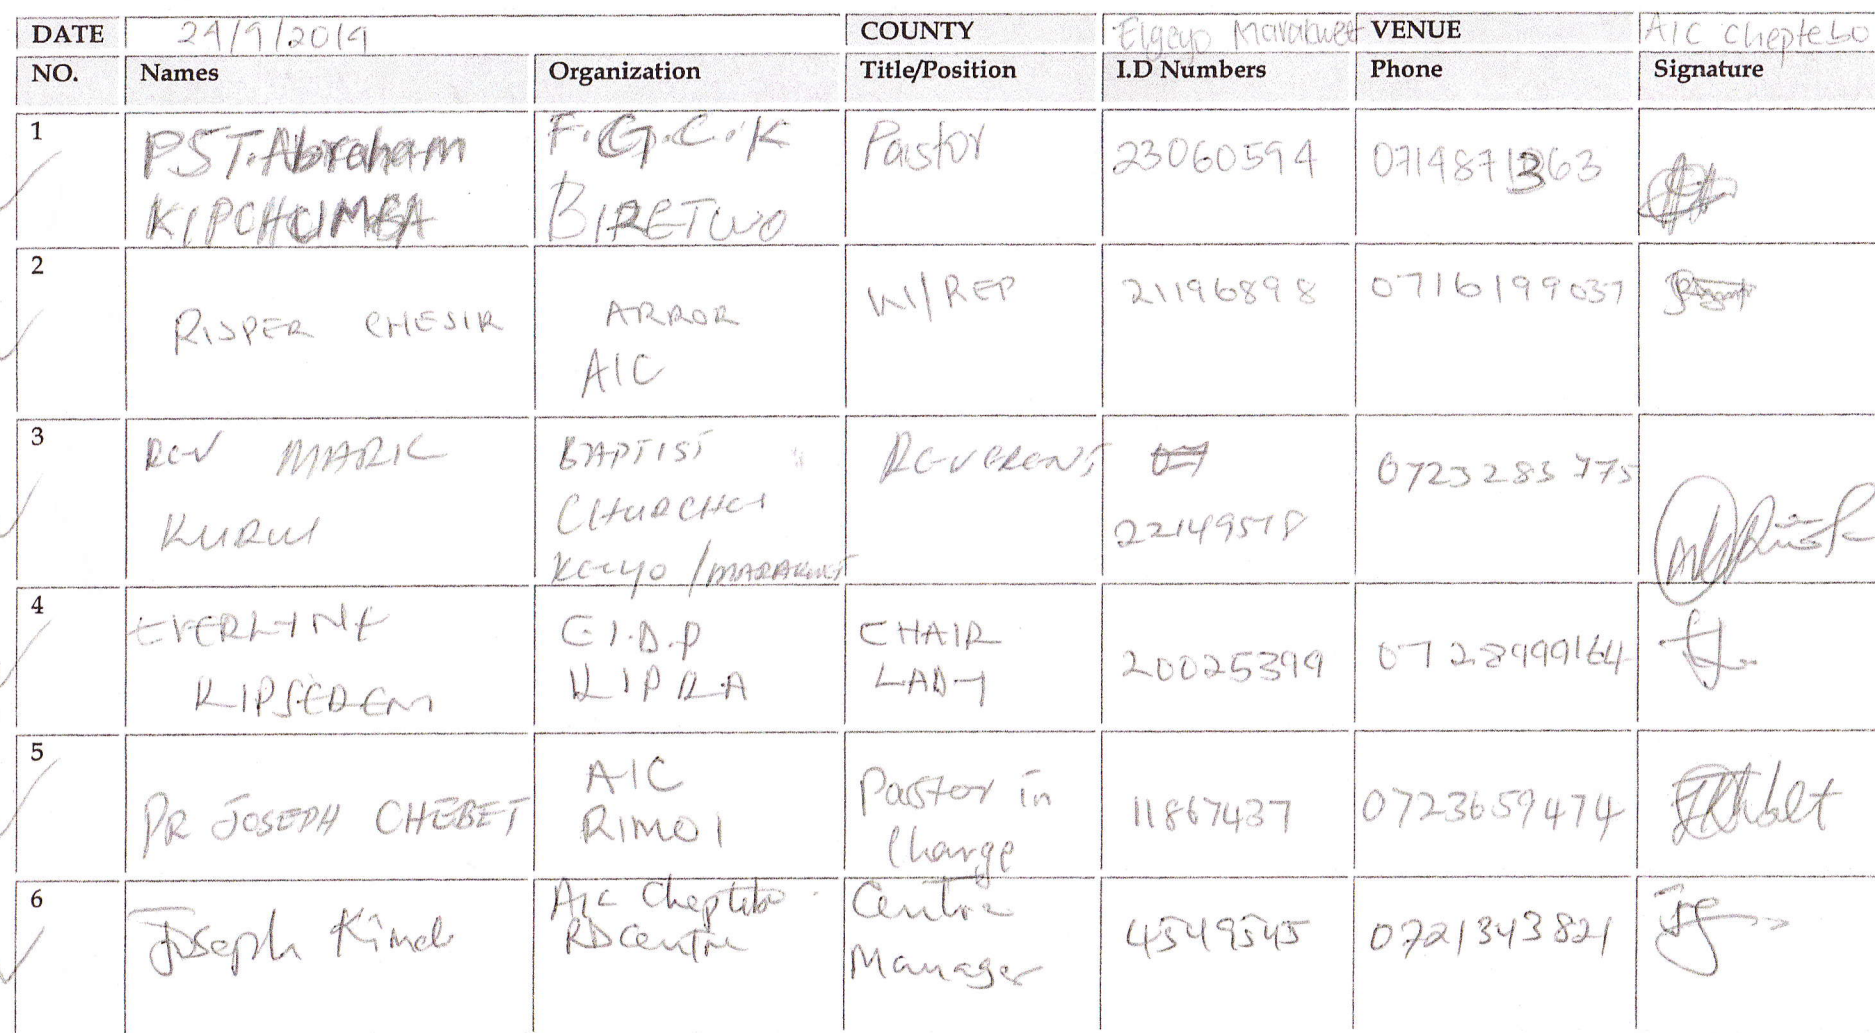 DATE 24/9/2019 COUNTY Elgeyo Marakwet VENUE AIC Cheptebo
NO. Names Organization Title/Position I.D Numbers Phone Signature
1 PST. Abraham KIPCHUMBA F.G.C.K BIRETWO Pastor 23060594 0714871363
2 RISPER CHESIR ARROR AIC W/REP 21196898 0716199037
3 REV MARK KURUI BAPTIST CHURCHES KEIYO/MARAKWET REVEREND 22149518 0723283775
4 EVERLYNE KIPSEREM C.I.D.P KIPRA CHAIR LADY 20025399 0728999164
5 PR JOSEPH CHEBET AIC RIMOI Pastor in Charge 11867437 0723659474
6 Joseph Kimeli AIC Cheptebo RD Centre Centre Manager 4549545 0721343821